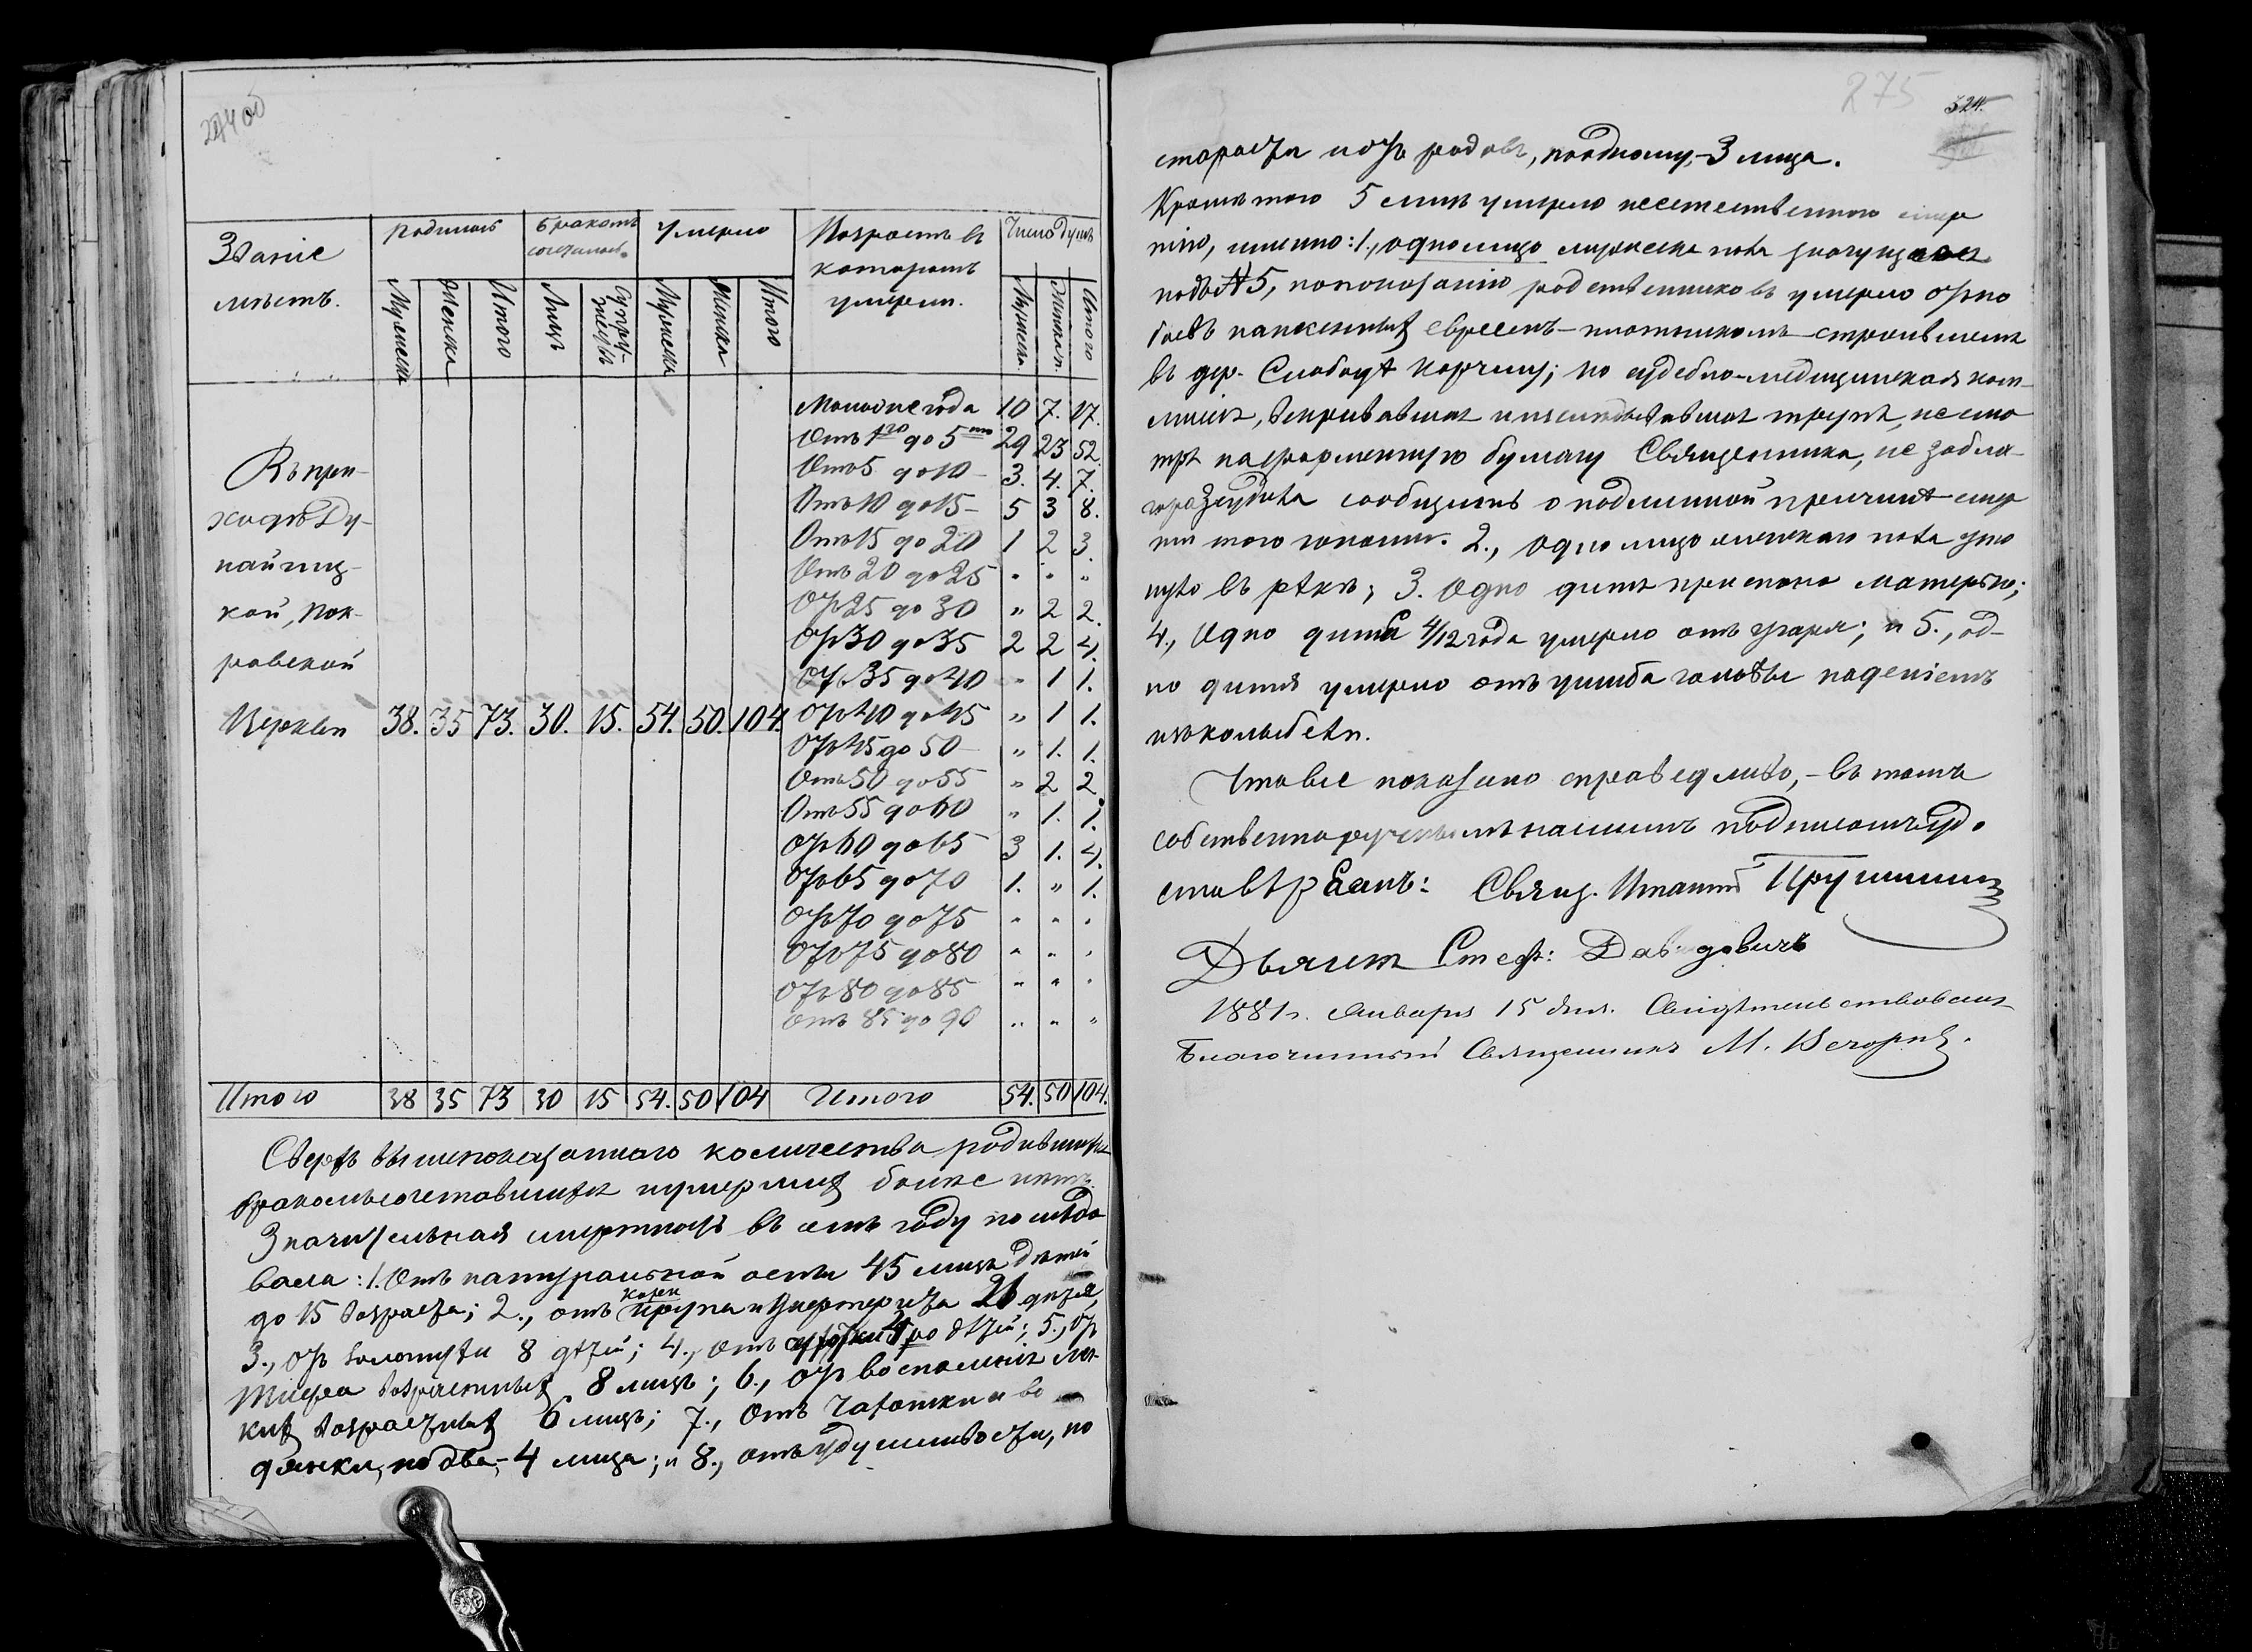 274 об
Званіе мѣстъ.
Родилось
Бракомъ сочеталось.
Умерло
Возрастъ въ которомъ умерли.
Число душъ
Мужеска Женска Итого Лицъ Супружествъ Мужеска Женска Итого Мужеска. Женска. Итого
Моложе года 10 7. 17.
Отъ 1го до 5ти 29 23 52.
Отъ 5 до 10 - 3. 4. 7.
Отъ 10 до 15 - 5 3 8.
Отъ 15 до 20 1 2 3.
Отъ 20 до 25 " " "
Отъ 25 до 30 " 2 2.
Отъ 30 до 35 2 2 4.
Отъ 35 до 40 " 1 1.
Въ при-
ходѣ Ду-
найчиц-
кой, Пок-
ровской
Церкви 38. 35 73. 30. 15. 54. 50. 104. Отъ 40 до 45 " 1 1.
Отъ 45 до 50 " 1. 1.
Отъ 50 до 55 " 2 2.
Отъ 55 до 60 " 1. 1.
Отъ 60 до 65 3 1. 4.
Отъ 65 до 70 1. " 1.
Отъ 70 до 75 " " "
Отъ 75 до 80 " " "
Отъ 80 до 85 " " "
Отъ 85 до 90 " " "
Итого 38 35 73 30 15 54. 50 104 Итого 54. 50 104.
Сверхъ вышепоказаннаго количества родившихся
бракомъ сочетавшихся и умершихъ болѣе нѣтъ.
Значительная смертность въ семъ году послѣдо
вала: 1. Отъ натуральной оспы 45 лицъ дѣтей
до 15 возраста; 2., отъ крупа и дифтерита 26 дѣтей,
3., отъ золотухи 8 дѣтей; 4., Отъ дѣтей; 5., отъ
тифа возрастныхъ 8 лицъ; 6., отъ воспаленія лег-
кихъ возрастныхъ 6 лицъ; 7., Отъ чахотки и во
дянки, по два, - 4 лица; и 8., отъ удушливости, по
275
324.
старости и отъ родовъ, по одному, - 3 лица.
Кромѣ того 5 лицъ умерло неестественною смер
тію, именно: 1., одно лицо мужеска пола значущееся
подъ № 5, по показанію родственниковъ умерло отъ по
боевъ нанесенныхъ евреемъ - плотникомъ - строившемъ
въ дер. Слободѣ корчму; но судебно-медицинская ком-
мисія, вскрывавшая и изслѣдовавшая трупъ, не смо
тря на форменную бумагу Священника, не забла-
горазсудила сообщить о подлинной причинѣ смер
ти того юноши. 2., Одно лицо женскаго пола уто
нуло въ рѣкѣ; 3. Одно дитя приспано матерью;
4., Одно дитя 4/12 года умерло отъ угара; и 5., од-
но дитя умерло отъ ушиба головы паденіемъ
изъ колыбели.
Что все показано справедливо, - въ томъ
собственноручнымъ нашимъ подписомъ удо
стовѣряемъ: Свящ. Игнатій
Дьячекъ Стеф: Давидовичъ
1881 г. Января 15 дня. Свидѣтельствовалъ
Благочинный Священникъ М.